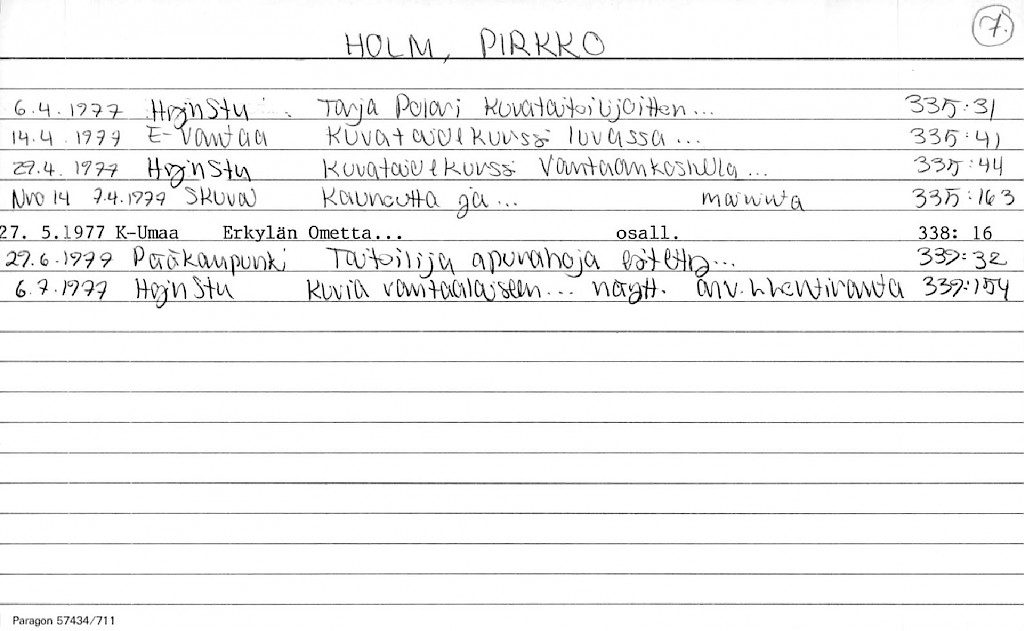 7.
HOLM, PIRKKO
6.4.1977 HgjnStu Tarja Polari kuvataiteilijoitten... 335:31
14.4.1977 E-Vantaa Kuvataidekurssi luvassa... 335:41
27.4.1977 HgjnStu Kuvataidekurssi Vantaankoskella... 335:44
Nro 14 7.4.1977 SKuval Kauneutta ja... maininta 335:163
27. 5.1977 K-Umaa Erkylän Ometta... osall. 338: 16
29.6.1977 Pääkaupunki Taiteilija apurahoja esitetty... 339:32
6.7.1977 HgjnStu Kuvia vantaalaiseen... näytt. arv. 339:154
Paragon 57434/711